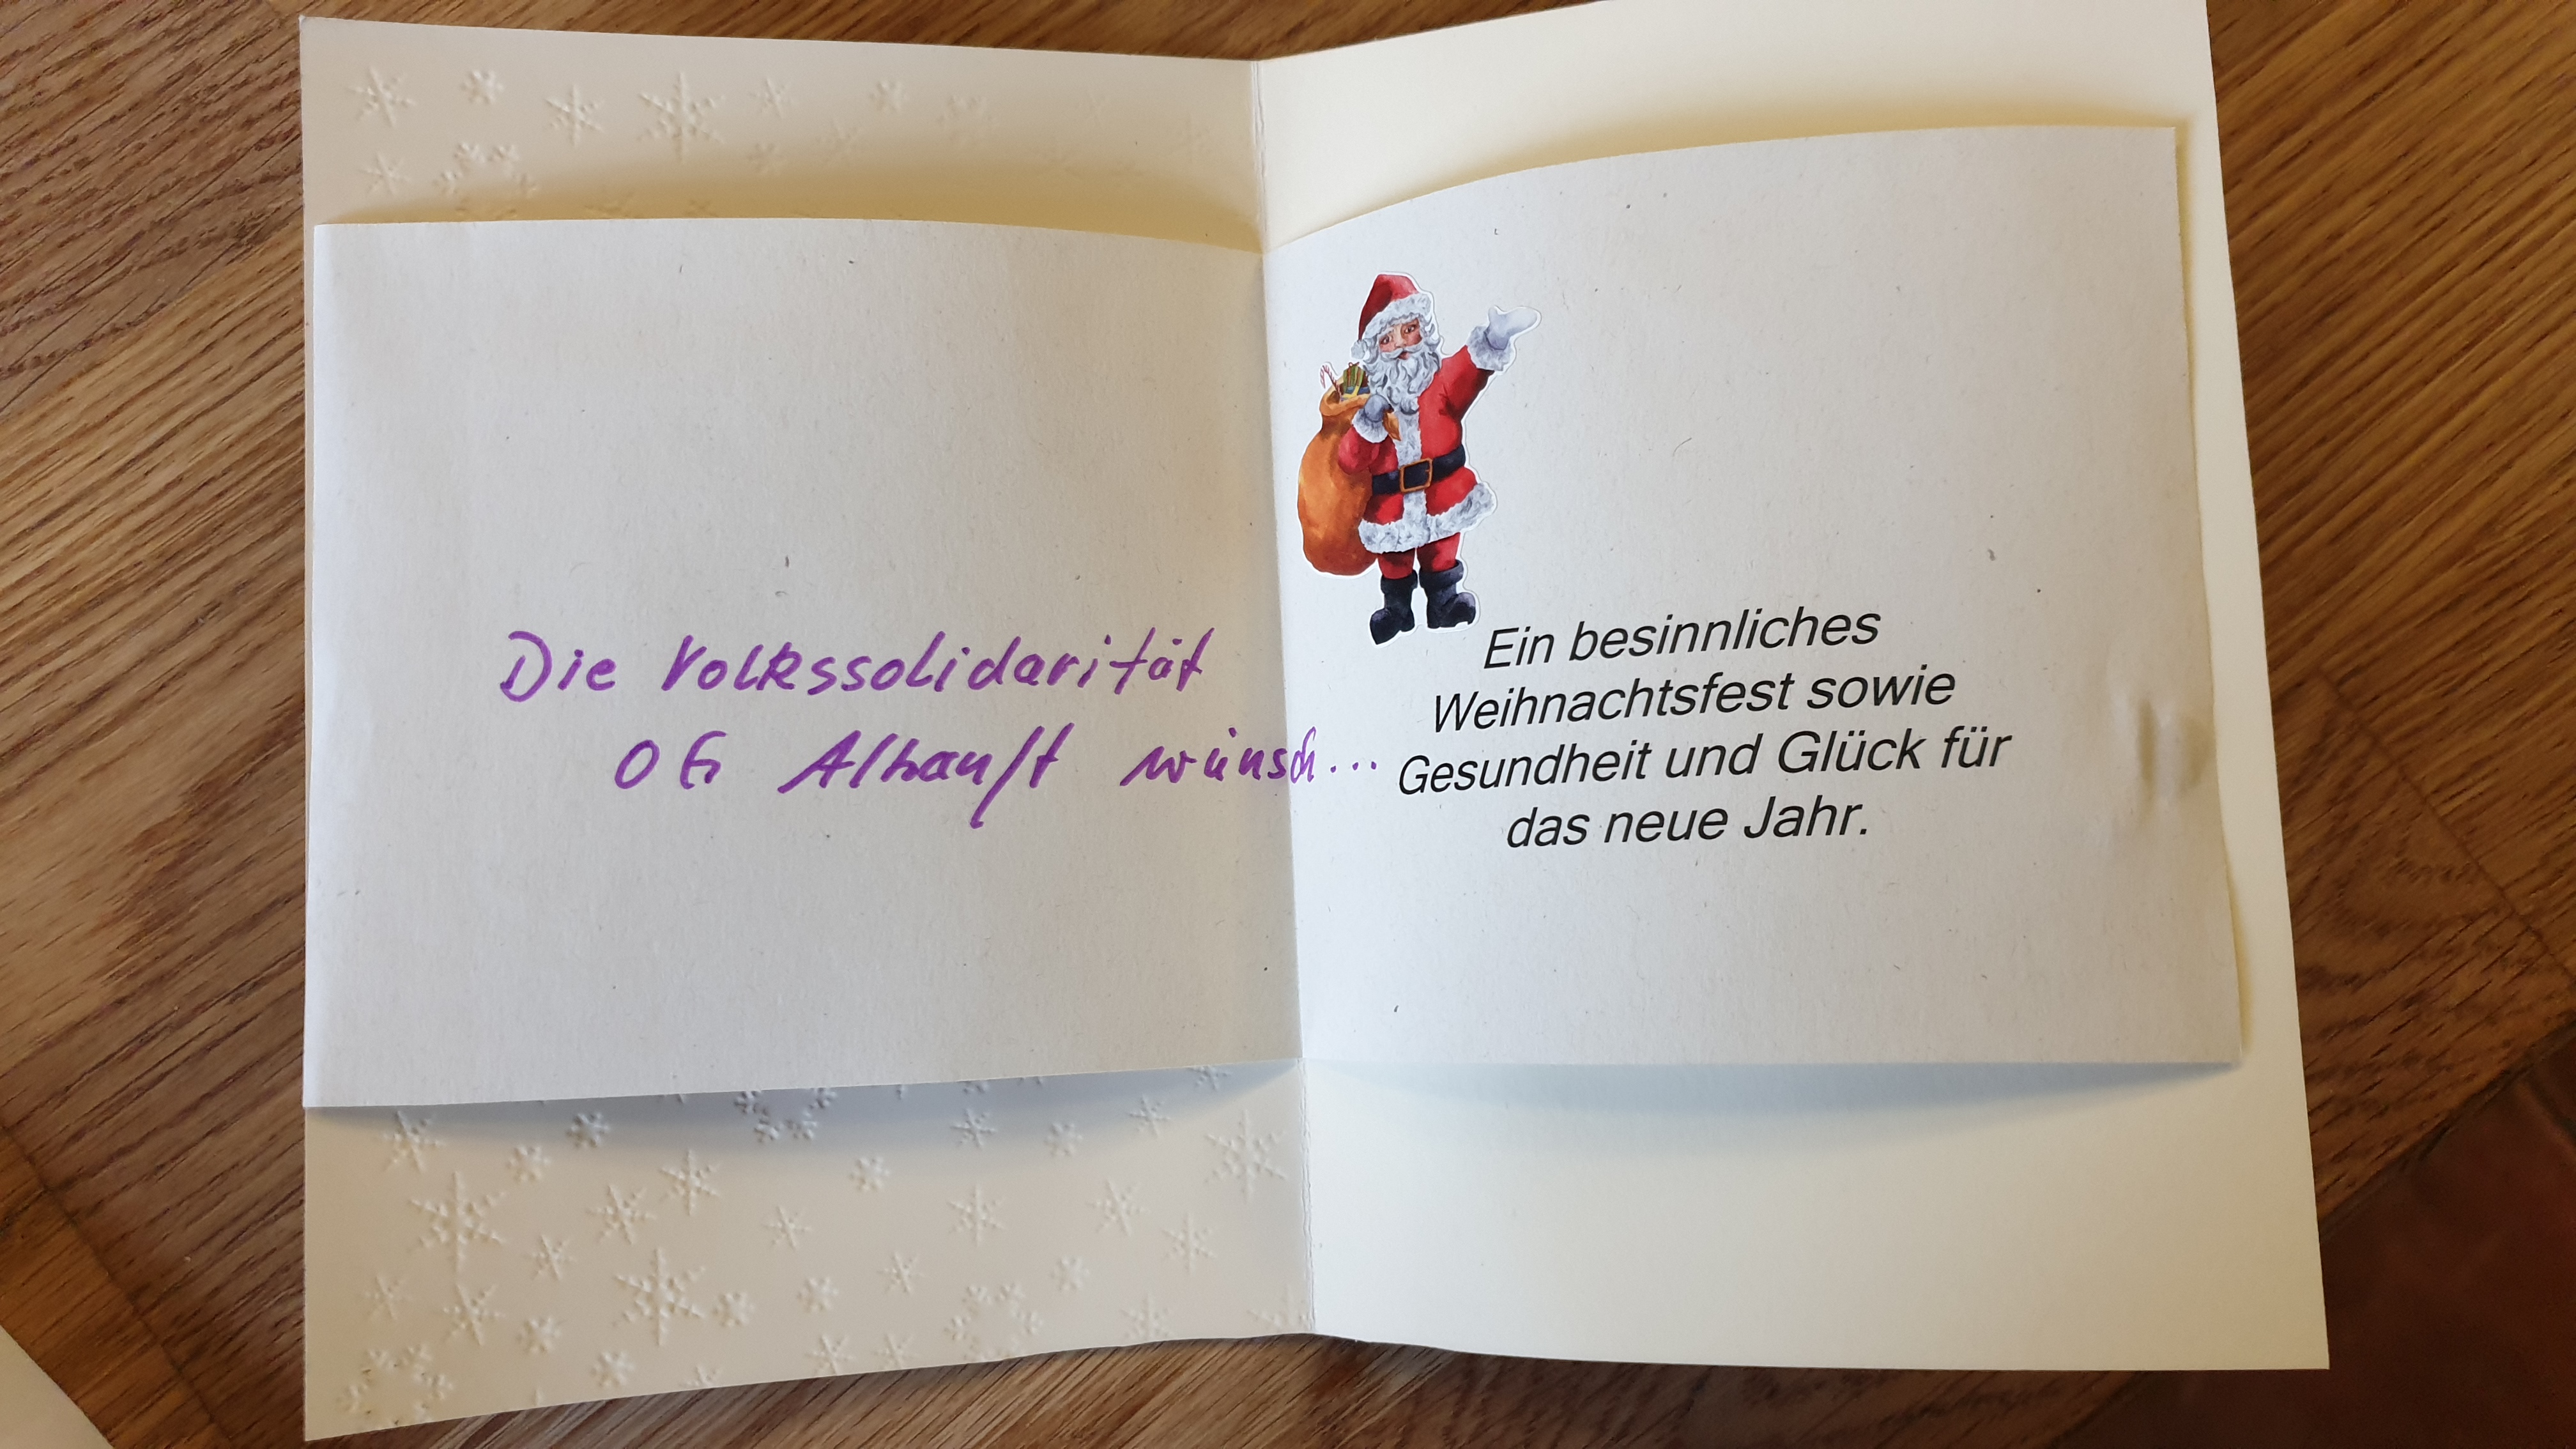 Die Volkssolidarität
OG Althanft wünsch...
Ein besinnliches
Weihnachtsfest sowie
Gesundheit und Glück für
das neue Jahr.